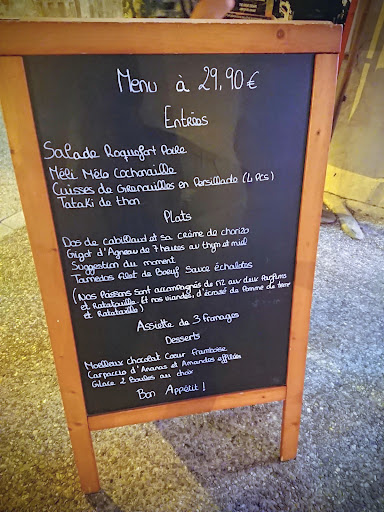 Menu à 29,90€
Entrées
Salade Roquefort Poire
Méli Mélo Cochonaille
Cuisses de Grenouilles en Persillade (4 Pcs)
Tataki de thon
Plats
Dos de cabillaud et sa crème de chorizo
Gigot d'Agneau de 7 heures au thym et miel
Suggestion du moment
Tournedos filet de Boeuf Sauce échalotes
(Nos Poissons sont accompagnés de riz aux deux Parfums
et Ratatouille. Et nos viandes, d'écrasé de Pomme de terre
et Ratatouille)
Assiette de 3 fromages
Desserts
Moelleux chocolat Coeur framboise
Carpaccio d'Ananas et Amandes effilées
Glace 2 Boules au choix
Bon Appétit!